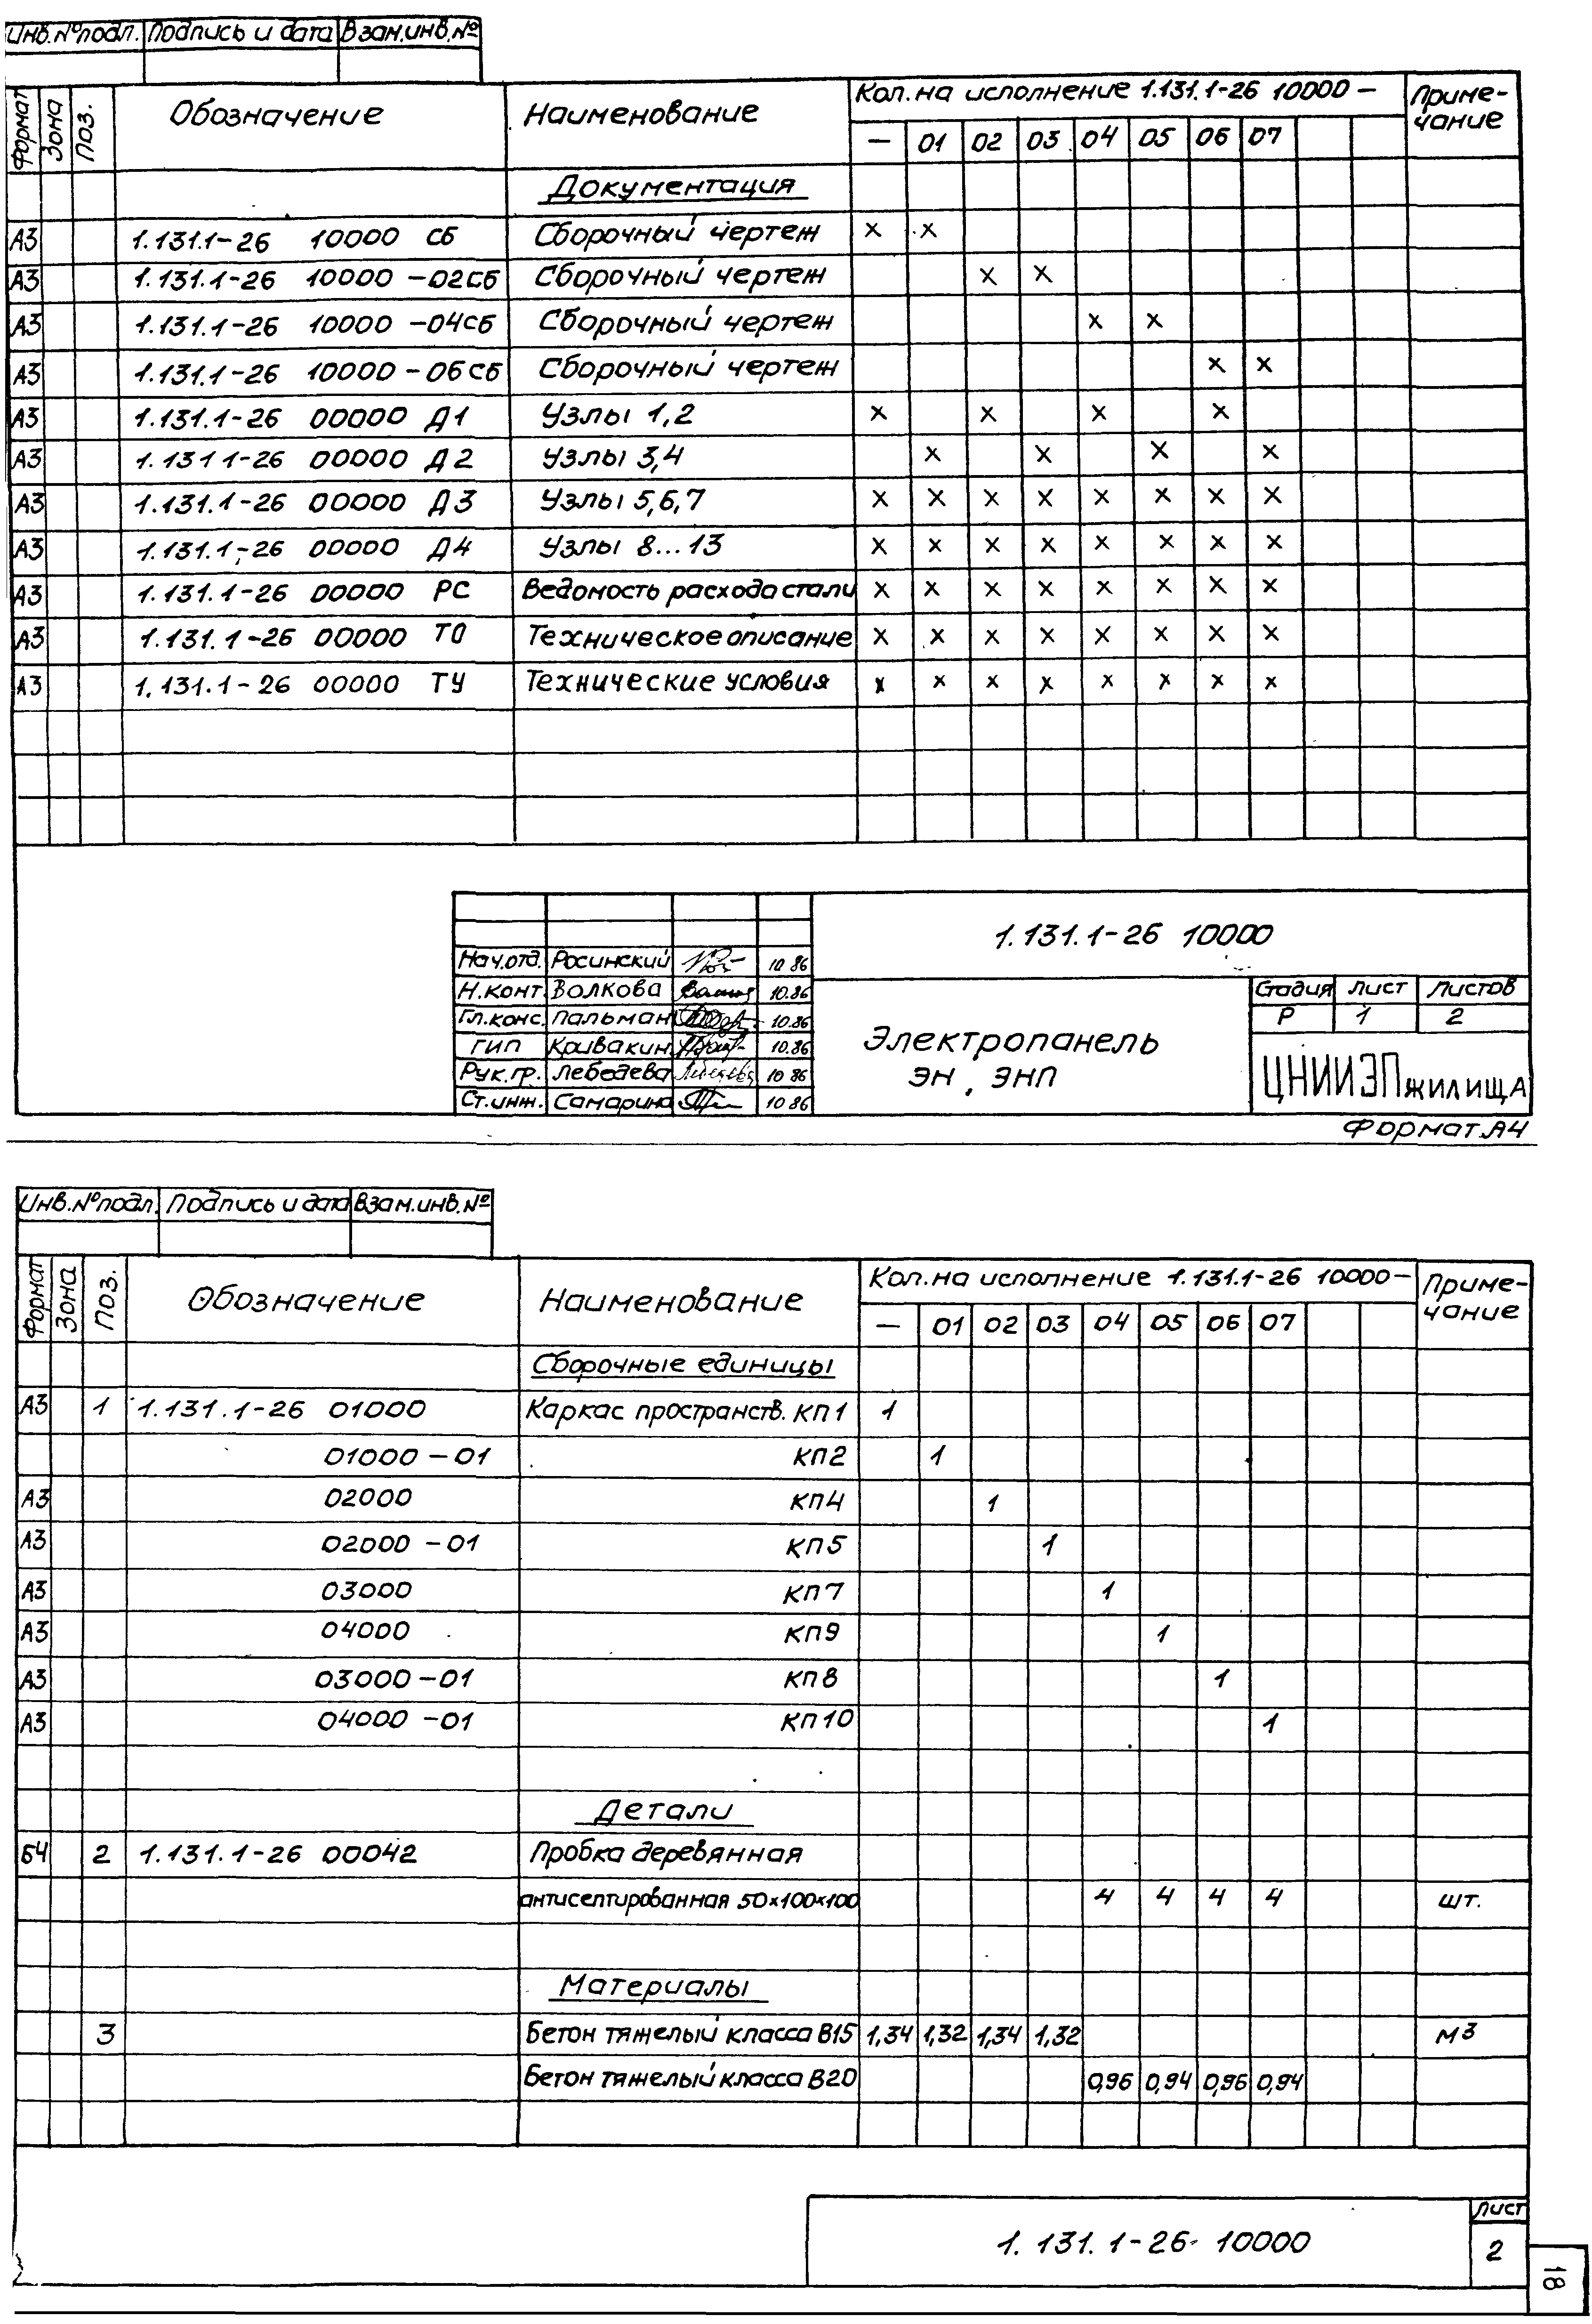 Инв.№подл. Подпись и дата Взам.инв.№
Формат Зона Поз. Обозначение Наименование Кол. на исполнение 1.131.1-26 10000 — Приме-
чание
— 01 02 03 04 05 06 07
Документация
А3 1.131.1-26 10000 СБ Сборочный чертеж х х
А3 1.131.1-26 10000 -02СБ Сборочный чертеж х х
А3 1.131.1-26 10000 -04СБ Сборочный чертеж х х
А3 1.131.1-26 10000 -06СБ Сборочный чертеж х х
А3 1.131.1-26 00000 Д1 Узлы 1,2 х х х х
А3 1.131 1-26 00000 Д2 Узлы 3,4 х х х х
А3 1.131.1-26 00000 Д3 Узлы 5,6,7 х х х х х х х х
А3 1.131.1-26 00000 Д4 Узлы 8...13 х х х х х х х х
А3 1.131.1-26 00000 РС Ведомость расхода стали х х х х х х х х
А3 1.131.1-26 00000 ТО Техническое описание х х х х х х х х
А3 1.131.1-26 00000 ТУ Технические условия х х х х х х х х
1.131.1-26 10000
Нач.отд. Росинский 10 86
Н.конт. Волкова 10.86
Гл.конс. Пальман 10.86
ГИП Кривакин 10.86
Рук.гр. Лебедева 10 86
Ст.инж. Самарина 10 86
Электропанель
ЭН, ЭНП
Стадия Лист Листов
Р 1 2
ЦНИИЭП жилища
Формат А4
Инв.№подл. Подпись и дата Взам.инв.№
Формат Зона Поз. Обозначение Наименование Кол. на исполнение 1.131.1-26 10000 — Приме-
чание
— 01 02 03 04 05 06 07
Сборочные единицы
А3 1 1.131.1-26 01000 Каркас пространств. КП1 1
01000 -01 КП2 1
А3 02000 КП4 1
А3 02000 -01 КП5 1
А3 03000 КП7 1
А3 04000 КП9 1
А3 03000 -01 КП8 1
А3 04000 -01 КП10 1
Детали
Б4 2 1.131.1-26 00042 Пробка деревянная
антисептированная 50х100х100 4 4 4 4 шт.
Материалы
3 Бетон тяжелый класса В15 1,34 1,32 1,34 1,32 м3
Бетон тяжелый класса В20 0,96 0,94 0,96 0,94
1.131.1-26 10000
Лист
2
18